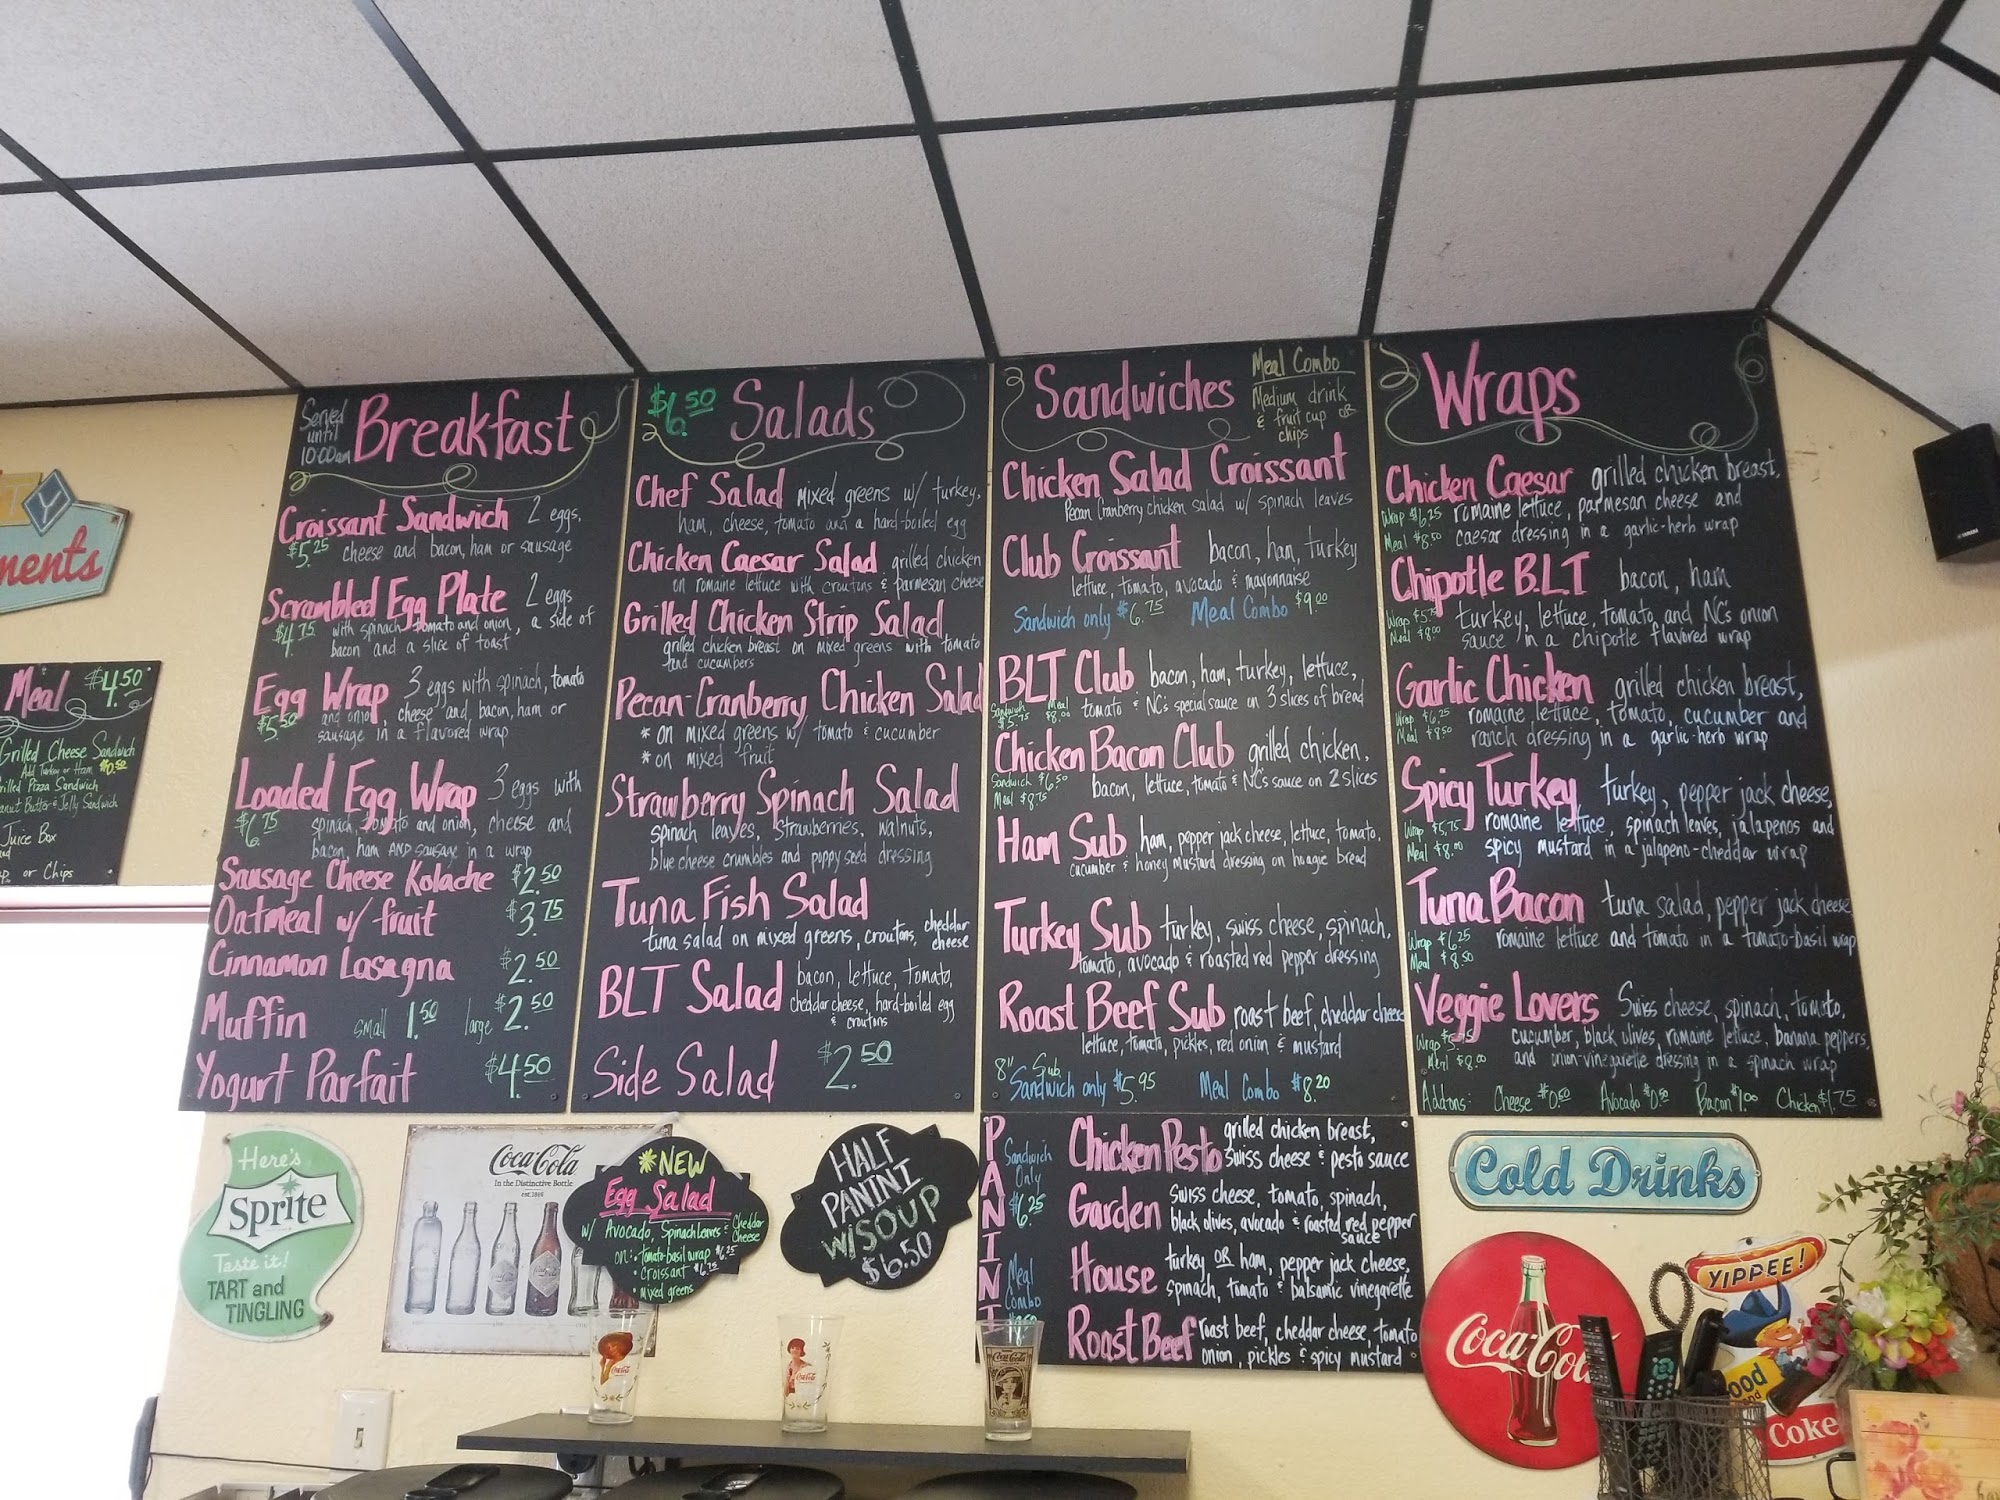 TY
ments
Meal $4.50
Grilled Cheese Sandwich
Add Turkey or Ham $0.50
rilled Pizza Sandwich
anut Butter & Jelly Sandwich
Juice Box
or Chips
Served
until
10:00am
Breakfast
Croissant Sandwich 2 eggs,
$5.25 cheese and bacon, ham or sausage
Scrambled Egg Plate 2 eggs
$4.75 with spinach, tomato and onion, a side of
bacon and a slice of toast
Egg Wrap 3 eggs with spinach, tomato
$5.50 and onion, cheese and bacon, ham or
sausage in a flavored wrap
Loaded Egg Wrap 3 eggs with
$6.75 spinach, tomato and onion, cheese and
bacon, ham AND sausage in a wrap
Sausage Cheese Kolache $2.50
Oatmeal w/ fruit $3.75
Cinnamon Lasagna $2.50
Muffin small 1.50 large $2.50
Yogurt Parfait $4.50
$6.50 Salads
Chef Salad mixed greens w/ turkey,
ham, cheese, tomato and a hard-boiled egg
Chicken Caesar Salad grilled chicken
on romaine lettuce with croutons & parmesan cheese
Grilled Chicken Strip Salad
grilled chicken breast on mixed greens with tomato
and cucumbers
Pecan-Cranberry Chicken Salad
* on mixed greens w/ tomato & cucumber
* on mixed fruit
Strawberry Spinach Salad
spinach leaves, strawberries, walnuts,
blue cheese crumbles and poppy seed dressing
Tuna Fish Salad
tuna salad on mixed greens, croutons, cheddar cheese
BLT Salad bacon, lettuce, tomato,
cheddar cheese, hard-boiled egg
& croutons
Side Salad $2.50
Sandwiches
Meal Combo
Medium drink
& fruit cup OR
chips
Chicken Salad Croissant
Pecan Cranberry chicken salad w/ spinach leaves
Club Croissant bacon, ham, turkey
lettuce, tomato, avocado & mayonnaise
Sandwich only $6.75 Meal Combo $9.00
BLT Club bacon, ham, turkey, lettuce,
Sandwich $5.75 Meal $8.00 tomato & NC's special sauce on 3 slices of bread
Chicken Bacon Club grilled chicken,
Sandwich $6.50 bacon, lettuce, tomato & NC's sauce on 2 slices
Meal $8.75
Ham Sub ham, pepper jack cheese, lettuce, tomato,
cucumber & honey mustard dressing on hoagie bread
Turkey Sub turkey, swiss cheese, spinach,
tomato, avocado & roasted red pepper dressing
Roast Beef Sub roast beef, cheddar cheese
lettuce, tomato, pickles, red onion & mustard
8" Sub
Sandwich only $5.95 Meal Combo $8.20
Wraps
Chicken Caesar grilled chicken breast,
Wrap $6.25 romaine lettuce, parmesan cheese and
Meal $8.50 caesar dressing in a garlic-herb wrap
Chipotle B.L.T bacon, ham
Wrap $5.75 turkey, lettuce, tomato, and NC's onion
Meal $8.00 sauce in a chipotle flavored wrap
Garlic Chicken grilled chicken breast,
Wrap $6.25 romaine lettuce, tomato, cucumber and
Meal $8.50 ranch dressing in a garlic-herb wrap
Spicy Turkey turkey, pepper jack cheese,
Wrap $5.75 romaine lettuce, spinach leaves, jalapenos and
Meal $8.00 spicy mustard in a jalapeno-cheddar wrap
Tuna Bacon tuna salad, pepper jack cheese
Wrap $6.25 romaine lettuce and tomato in a tomato-basil wrap
Meal $8.50
Veggie Lovers Swiss cheese, spinach, tomato,
Wrap $5.75 cucumber, black olives, romaine lettuce, banana peppers,
Meal $8.00 and onion-vinegarette dressing in a spinach wrap
Add-ons: Cheese $0.50 Avocado $0.50 Bacon $1.00 Chicken $1.75
PANINI
Sandwich
Only
$6.25
Meal
Combo
Chicken Pesto grilled chicken breast,
swiss cheese & pesto sauce
Garden swiss cheese, tomato, spinach,
black olives, avocado & roasted red pepper
sauce
House turkey OR ham, pepper jack cheese,
spinach, tomato & balsamic vinegarette
Roast Beef roast beef, cheddar cheese, tomato
onion, pickles & spicy mustard
Here's
Sprite
Taste it!
TART and
TINGLING
Coca-Cola
In the Distinctive Bottle
est. 1899
*NEW
Egg Salad
w/ Avocado, Spinach Leaves & Cheddar Cheese
on: • tomato-basil wrap $6.25
• croissant $6.75
• mixed greens
HALF
PANINI
W/SOUP
$6.50
Cold Drinks
Coca-Cola
YIPPEE!
ood
and
Coke
Coca-Cola
Coca-Cola
Coca-Cola
YAMAHA